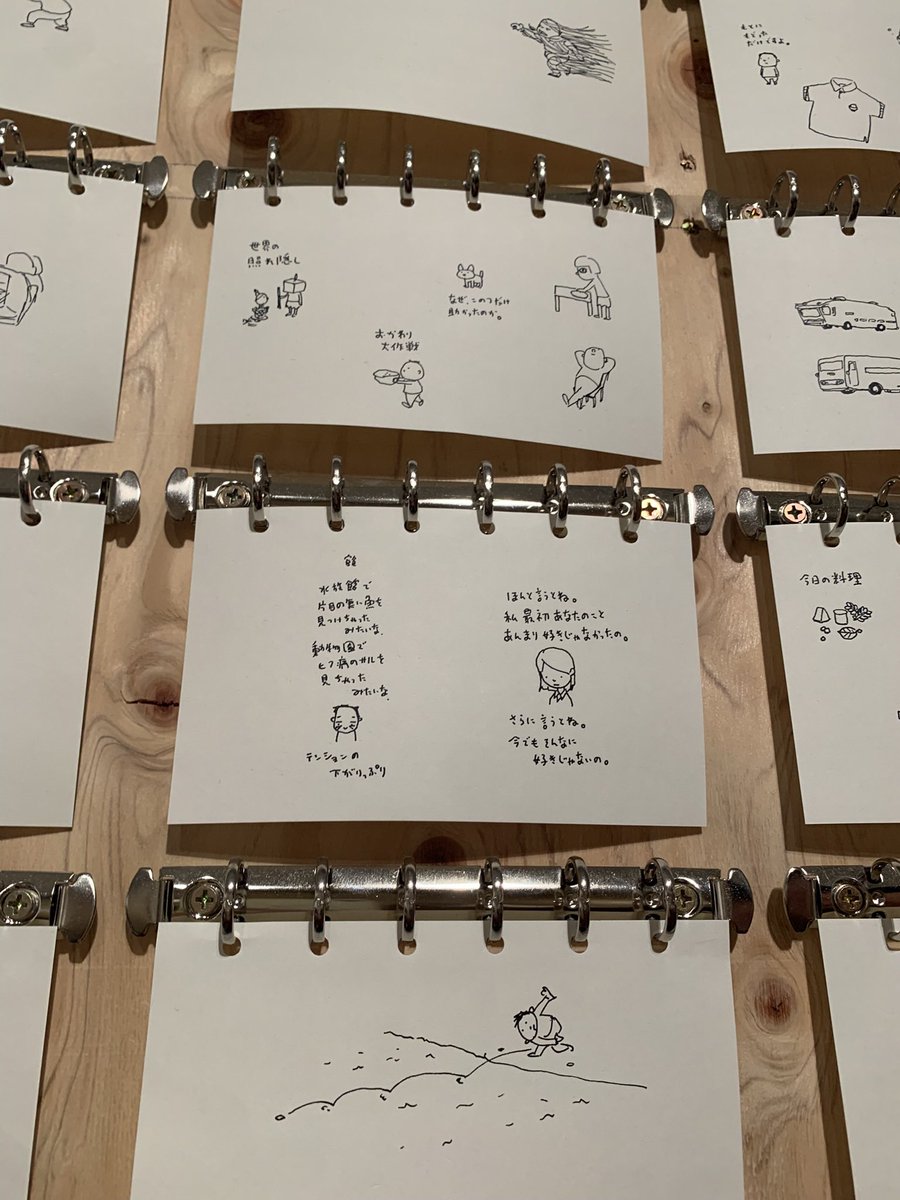 もとに
もどった
だけですよ。
世界の
照れ隠し
なぜ、この子だけ
助かったのか。
おかわり
大作戦
館
水族館で
片目の無い魚を
見つけちゃった
みたいな。
動物園で
ヒフ病のサルを
見ちゃった
みたいな。
テンションの
下がりっぷり
ほんと言うとね。
私最初あなたのこと
あんまり好きじゃなかったの。
さらに言うとね。
今でもそんなに
好きじゃないの。
今日の料理